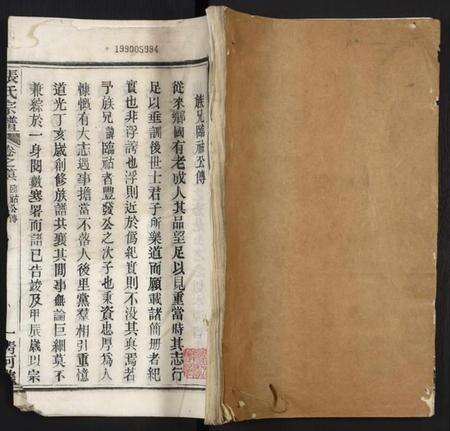 199005984
族兄臨祜公傳
從來鄉國有老成人其品望足以見重當時其志行
足以垂訓後世士君子所樂道而願載諸簡册者紀
實也非浮誇也浮則近於僞紀實則不没其眞焉若
予族兄諱臨祜者豐發公之次子也秉資忠厚為人
慷慨有大志遇事擔當不落人後里黨羣相引重憶
道光丁亥歲創修族譜共襄其間事無論巨細莫不
兼綜於一身閱數寒暑而譜已告竣及甲辰歲以宗
張氏宗譜 卷之 臨祜公傳 一